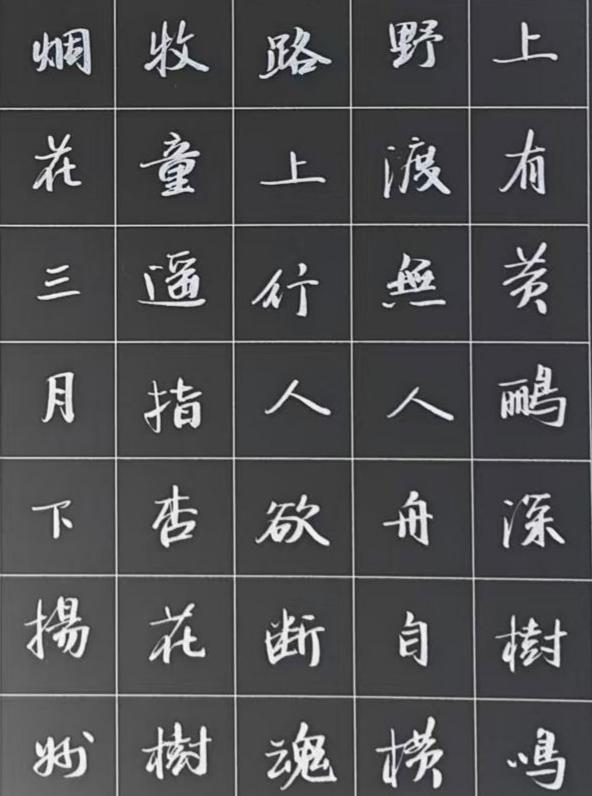 上有黄鹂深樹鳴
野渡無人舟自横
路上行人欲断魂
牧童遥指杏花樹
烟花三月下揚州